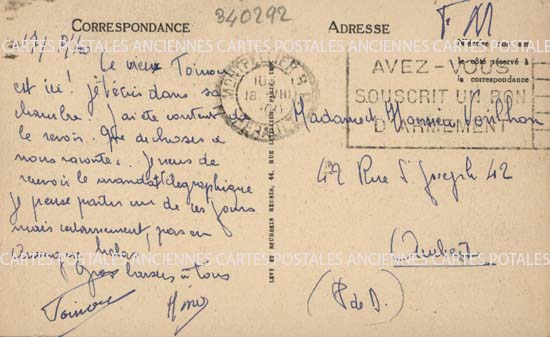 CORRESPONDANCE
ADRESSE
840292
F. M
N'écrire
le côté réservé à
la correspondance
AVEZ-VOUS
SOUSCRIT UN BON
D'ARMEMENT
Le vieux Toinou
est ici! j't'écris dans sa
chambre. J'ai été content de
le revoir. de choses à
nous raconter. Je viens de
recevoir le mandat télégraphique
Je pense partir un de ces jours
mais certainement, pas en
hélas
Gros baisers à Tous
Toinou
Madame et Monsieur
42 Rue St Joseph 42
Ambert
(P de D.)
LEVY ET NEURDEIN REUNIS, 44, RUE LETELLIER, PARIS
CARTES POSTALES ANCIENNES CARTES POSTALES ANCIENNES CARTES POSTALES